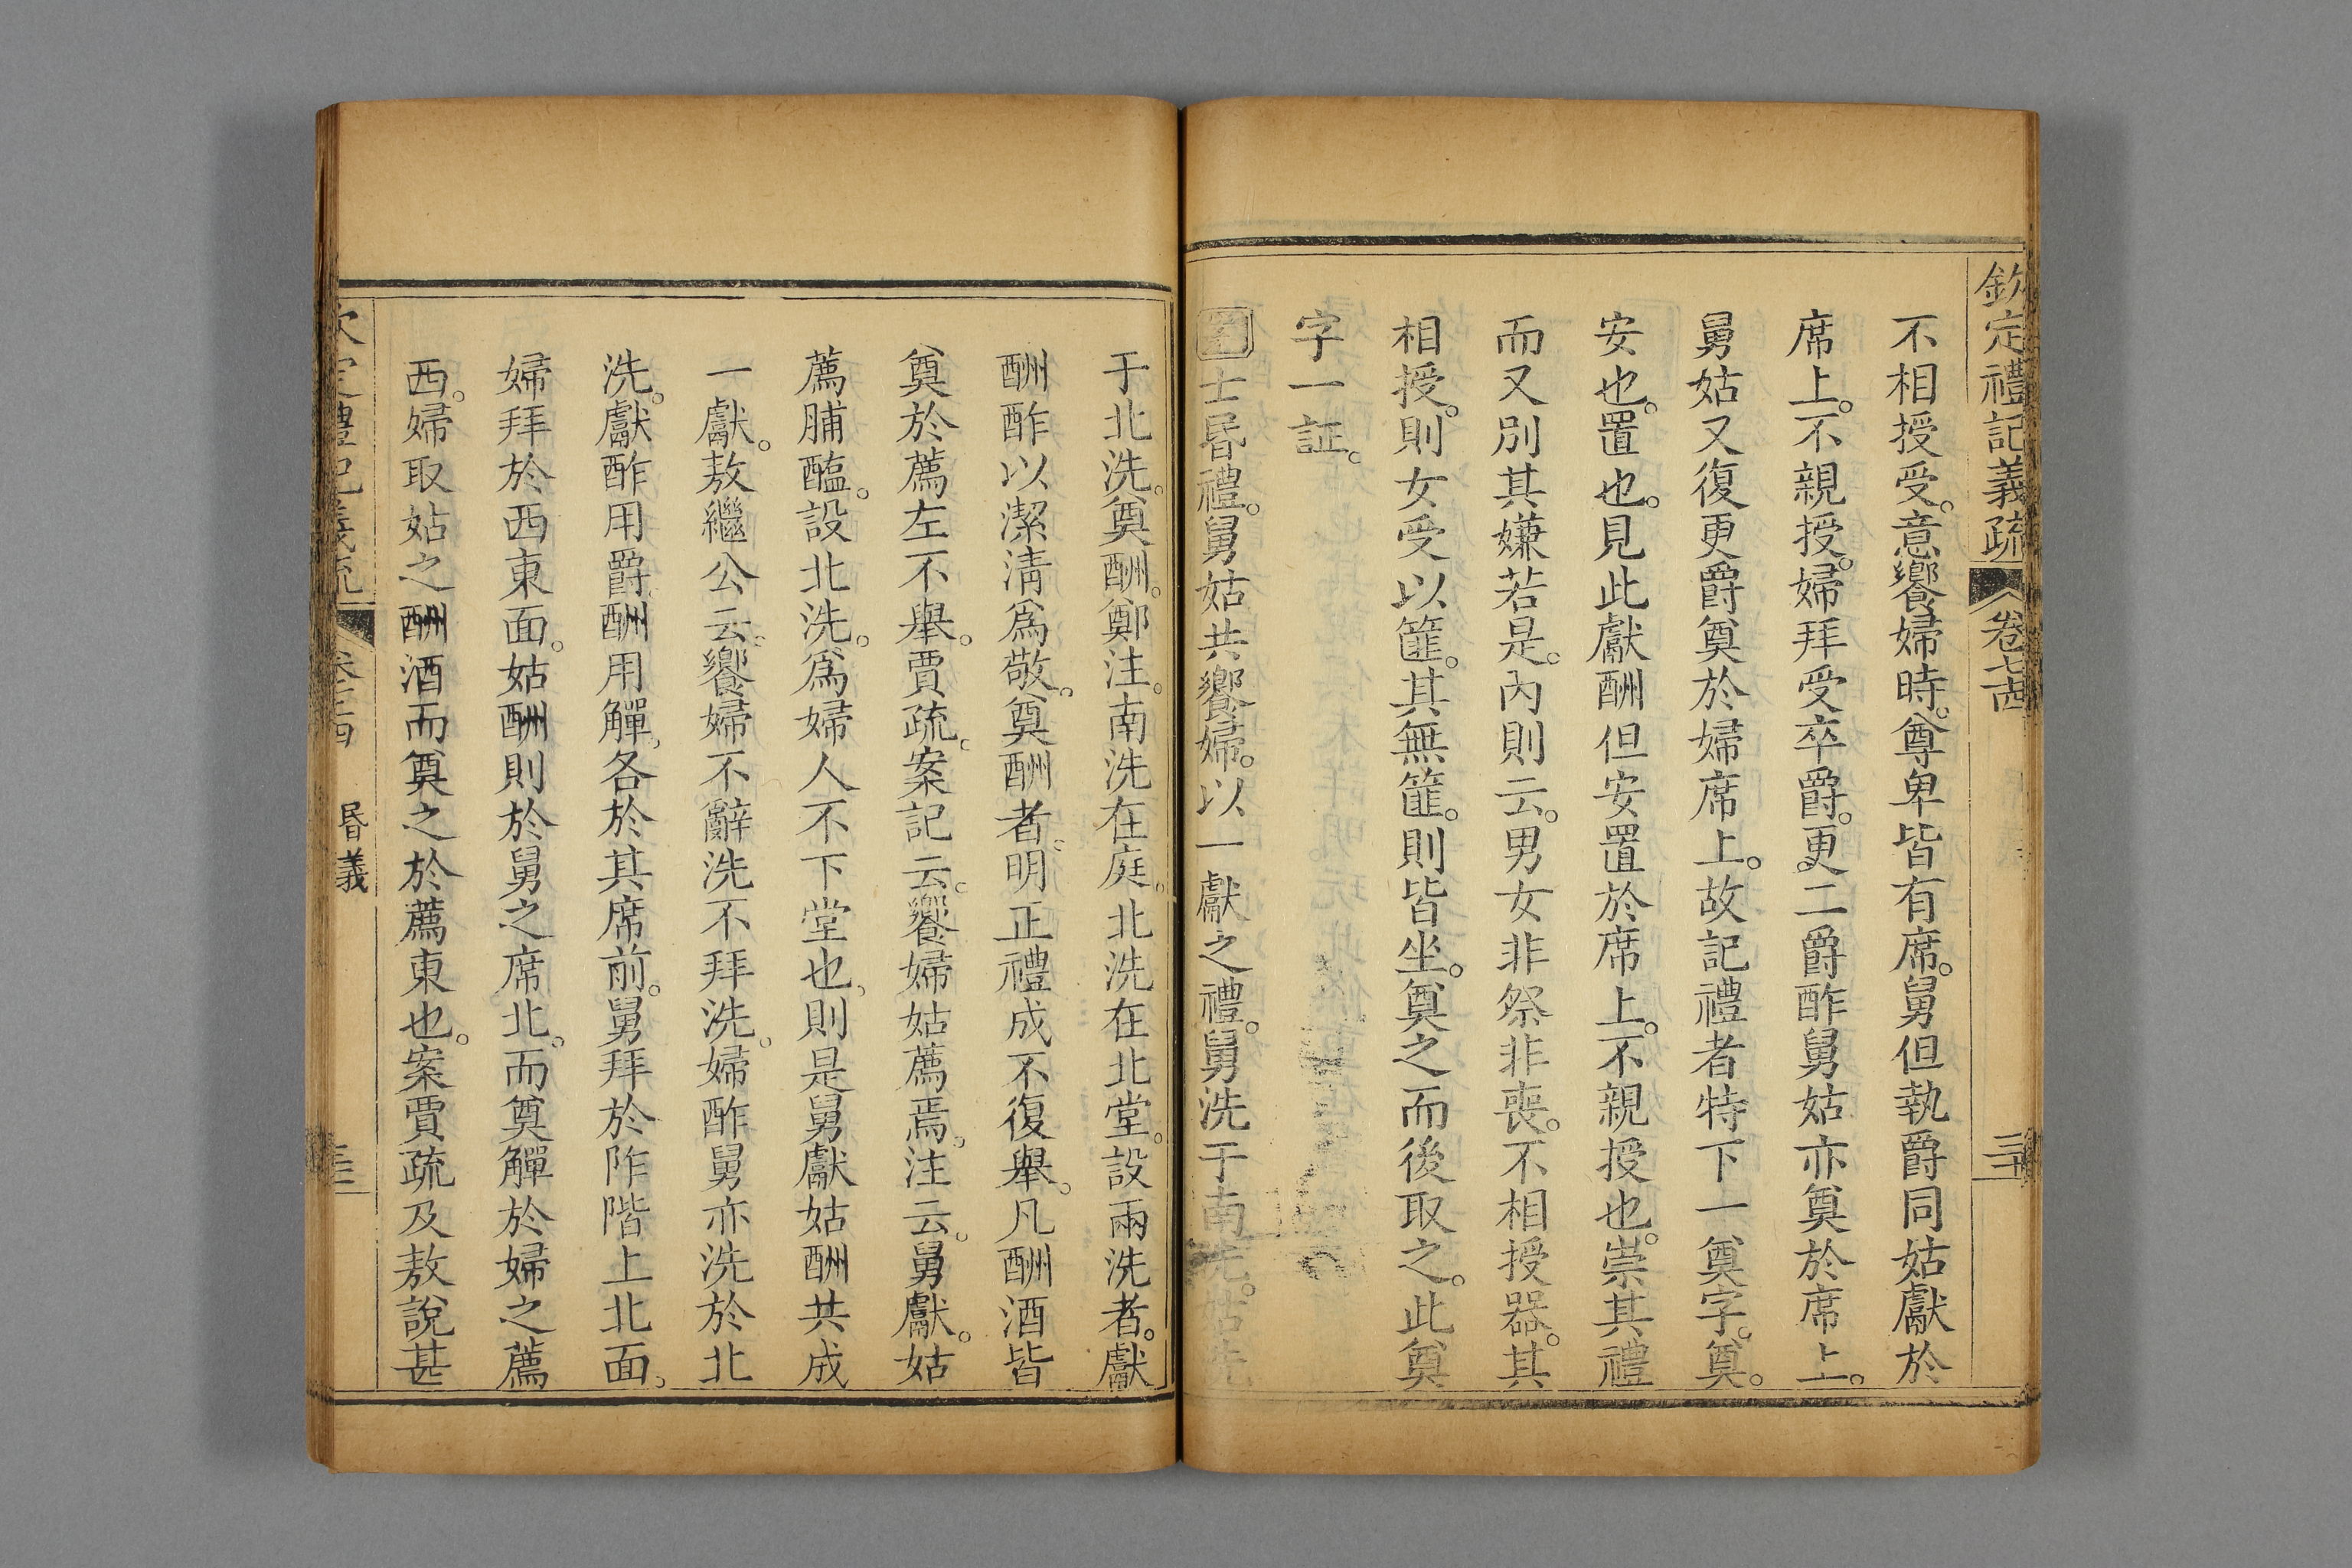 欽定禮記義疏 卷七十四 三十
不相授受。意饗婦時。尊卑皆有席。舅但執爵同姑獻於
席上。不親授。婦拜受卒爵。更二爵酢舅姑亦奠於席上。
舅姑又復更爵奠於婦席上。故記禮者特下一奠字。奠。
安也。置也。見此獻酬但安置於席上。不親授也。崇其禮
而又別其嫌若是。內則云。男女非祭非喪。不相授器。其
相授。則女受以篚。其無篚。則皆坐。奠之而後取之。此奠
字一証。
士昏禮。舅姑共饗婦。以一獻之禮。舅洗于南洗。姑洗
于北洗。奠酬。鄭注。南洗在庭。北洗在北堂。設兩洗者。獻
酬酢以潔淸爲敬。奠酬者。明正禮成不復舉。凡酬酒皆
奠於薦左不舉。賈疏。案記云。饗婦姑薦焉。注云。舅獻。姑
薦脯醢。設北洗。爲婦人不下堂也。則是舅獻姑酬共成
一獻。敖繼公云。饗婦不辭洗不拜洗。婦酢舅亦洗於北
洗。獻酢用爵。酬用觶。各於其席前。舅拜於阼階上北面。
婦拜於西東面。姑酬則於舅之席北。而奠觶於婦之薦
西。婦取姑之酬酒而奠之於薦東也。案賈疏及敖說甚
欽定禮記義疏 卷七十四 昏義